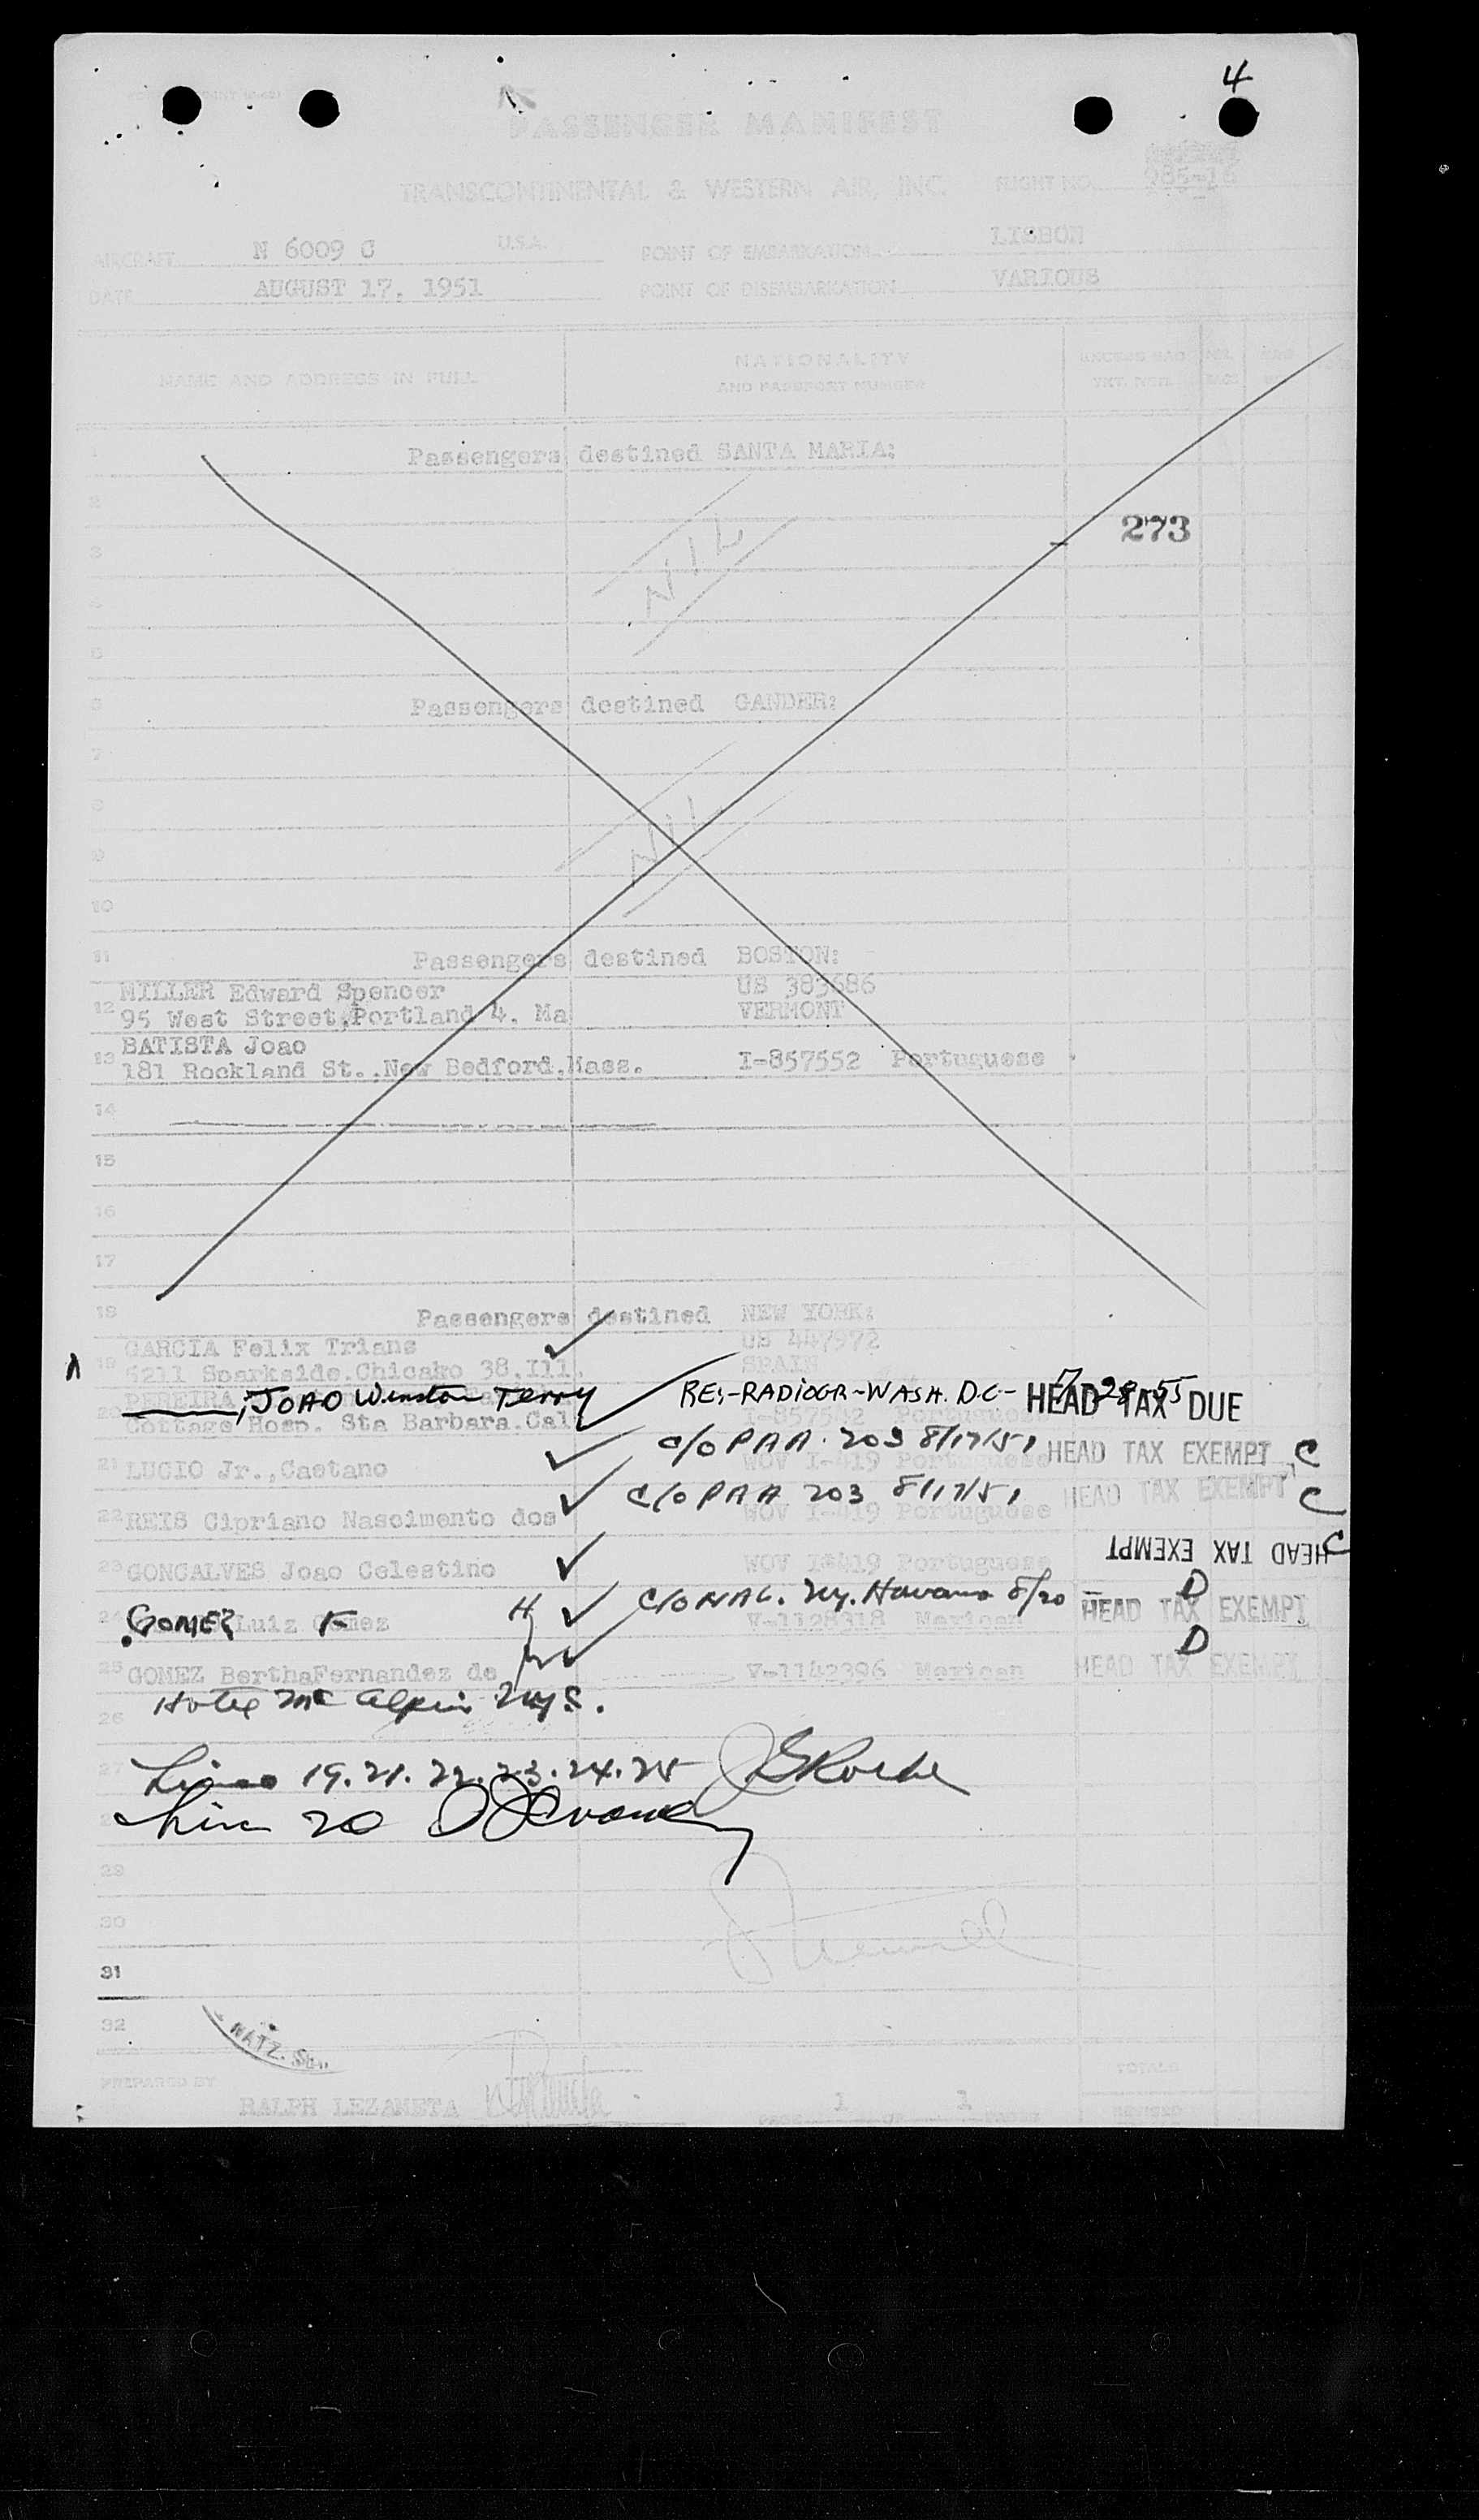 4
PASSENGER MANIFEST
TRANSCONTINENTAL & WESTERN AIR, INC. FLIGHT NO. 985-16
AIRCRAFT N 6009 C U.S.A. POINT OF EMBARKATION LISBON
DATE AUGUST 17, 1951 POINT OF DISEMBARKATION VARIOUS
NAME AND ADDRESS IN FULL NATIONALITY AND PASSPORT NUMBER EXCESS BAG
1 Passengers destined SANTA MARIA:
2
3 NIL 273
4
5
6 Passengers destined GANDER:
7
8
9 NIL
10
11 Passengers destined BOSTON:
12 MILLER Edward Spencer US 383686
95 West Street, Portland 4, Ma VERMONT
13 BATISTA Joao
181 Rockland St., New Bedford, Mass. I-857552 Portuguese
14
15
16
17
18 Passengers destined NEW YORK:
19 GARCIA Felix Triana US 447972
6211 Sparkside, Chicago 38, Ill. SPAIN
20 PEREIRA, JOAO Winston Terry RE:-RADIOGR-WASH. D.C- HEAD TAX DUE
Cottage Hosp. Sta Barbara. Cal I-857542 Portuguese
c/o PAA. 203 8/17/51
21 LUCIO Jr., Caetano WOV I-419 Portuguese HEAD TAX EXEMPT C
c/o PAA 203 8/17/51
22 REIS Cipriano Nascimento dos WOV I-419 Portuguese HEAD TAX EXEMPT C
23 GONCALVES Joao Celestino WOV I-419 Portuguese HEAD TAX EXEMPT C
c/o NAL. Ny. Havana 8/20 D
24 GOMEZ Luiz Gomez H V-1128318 Mexican HEAD TAX EXEMPT
D
25 GOMEZ Bertha Fernandez de V-1142396 Mexican HEAD TAX EXEMPT
26 Hotel Mc Alpin Nyc.
27 Lines 19. 21. 22. 23. 24. 25
Line 20
29
30
31
32
NATZ. SE
PREPARED BY RALPH LEZAMETA PAGE 1 OF 1 PAGES TOTALS